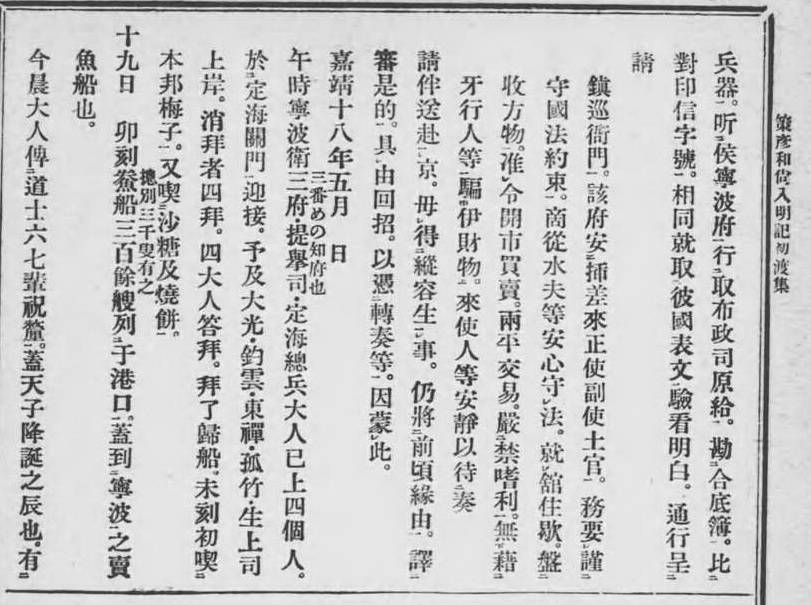 策彥和尙入明記初渡集
兵器。听侯寧波府行取布政司原給。勘合底簿。比
對印信字號。相同就取彼國表文驗看明白。通行呈
請
鎭巡衙門。該府安挿差來正使副使土官。務要謹
守國法約束。商從水夫等安心守法。就舘住歇。盤
收方物。准令開市買賣。兩平交易。嚴禁嗜利無藉
牙行人等騙伊財物。來使人等安靜以待奏
請伴送赴京。毋得縱容生事。仍將前頃緣由。譯
審是的。具由回招。以憑轉奏等。因蒙此。
嘉靖十八年五月　日
三番めの知府也
午時寧波衛三府・提擧司・定海總兵大人已上四個人。
於定海關門迎接。予及大光・鈞雲・東禪・孤竹・生上司
上岸。消拜者四拜。四大人答拜。拜了歸船。未刻初喫
本邦梅子。又喫沙糖及燒餅。
摠別三千叟有之
十九日　卯刻鯗船三百餘艘列于港口。蓋到寧波之賣
魚船也。
今晨大人傳道士六七輩祝釐。蓋天子降誕之辰也。有